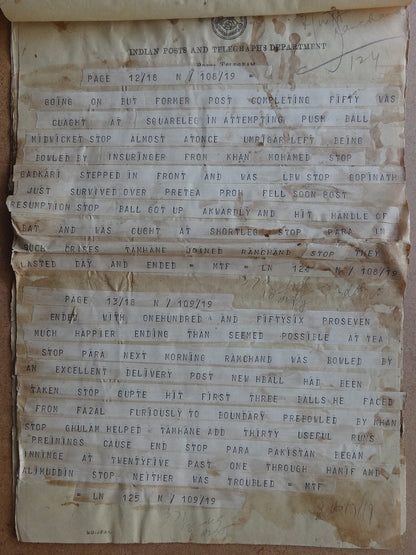 INDIAN POSTS AND TELEGRAPHS DEPARTMENT
PAGE 12/18 N /108/19 =
124
GOING ON BUT FORMER POST COMPLETING FIFTY WAS
CUAGHT AT SQUARELEG IN ATTEMPTING PUSH BALL
MIDWICKET STOP ALMOST ATONCE UMRIGAR LEFT BEING
BOWLED BY INSWRINGER FROM KHAN MOHAMED STOP
GADKARI STEPPED IN FRONT AND WAS LBW STOP GOPINATH
JUST SURVIVED OVER PRETEA PROH FELL SOON POST
RESUMPTION STOP BALL GOT UP AKWARDLY AND HIT HANDLE OF
BAT AND WAS CUGHT AT SHORTLEG STOP PARA IN
SUCH CRISES TAMHANE JOINED RAMCHAND STOP THEY
LASTED DAY AND ENDED = MTF = LN 124 N /108/19
PAGE 13/18 N /109/19
ENDED WITH ONEHUNDRED AND FIFTYSIX PROSEVEN
MUCH HAPPIER ENDING THAN SEEMED POSSIBLE AT TEA
STOP PARA NEXT MORNING RAMCHAND WAS BOWLED BY
AN EXCELLENT DELIVERY POST NEWHBALL HAD BEEN
TAKEN STOP GUPTE HIT FIRST THREE BALLS HE FACED
FROM FAZAL FURIOUSLY TO BOUNDARY PREBOWLED BY KHAN
STOP GHULAM HELPED TAMHANE ADD THIRTY USEFUL RUNS
PREININGS CAUSE END STOP PARA PAKISTAN BEGAN
INNINGE AT TWENTYFIVE PAST ONE THROUGH HANIF AND
ALIMUDDIN STOP NEITHER WAS TROUBLED = MTF
= LN 125 N /109/19